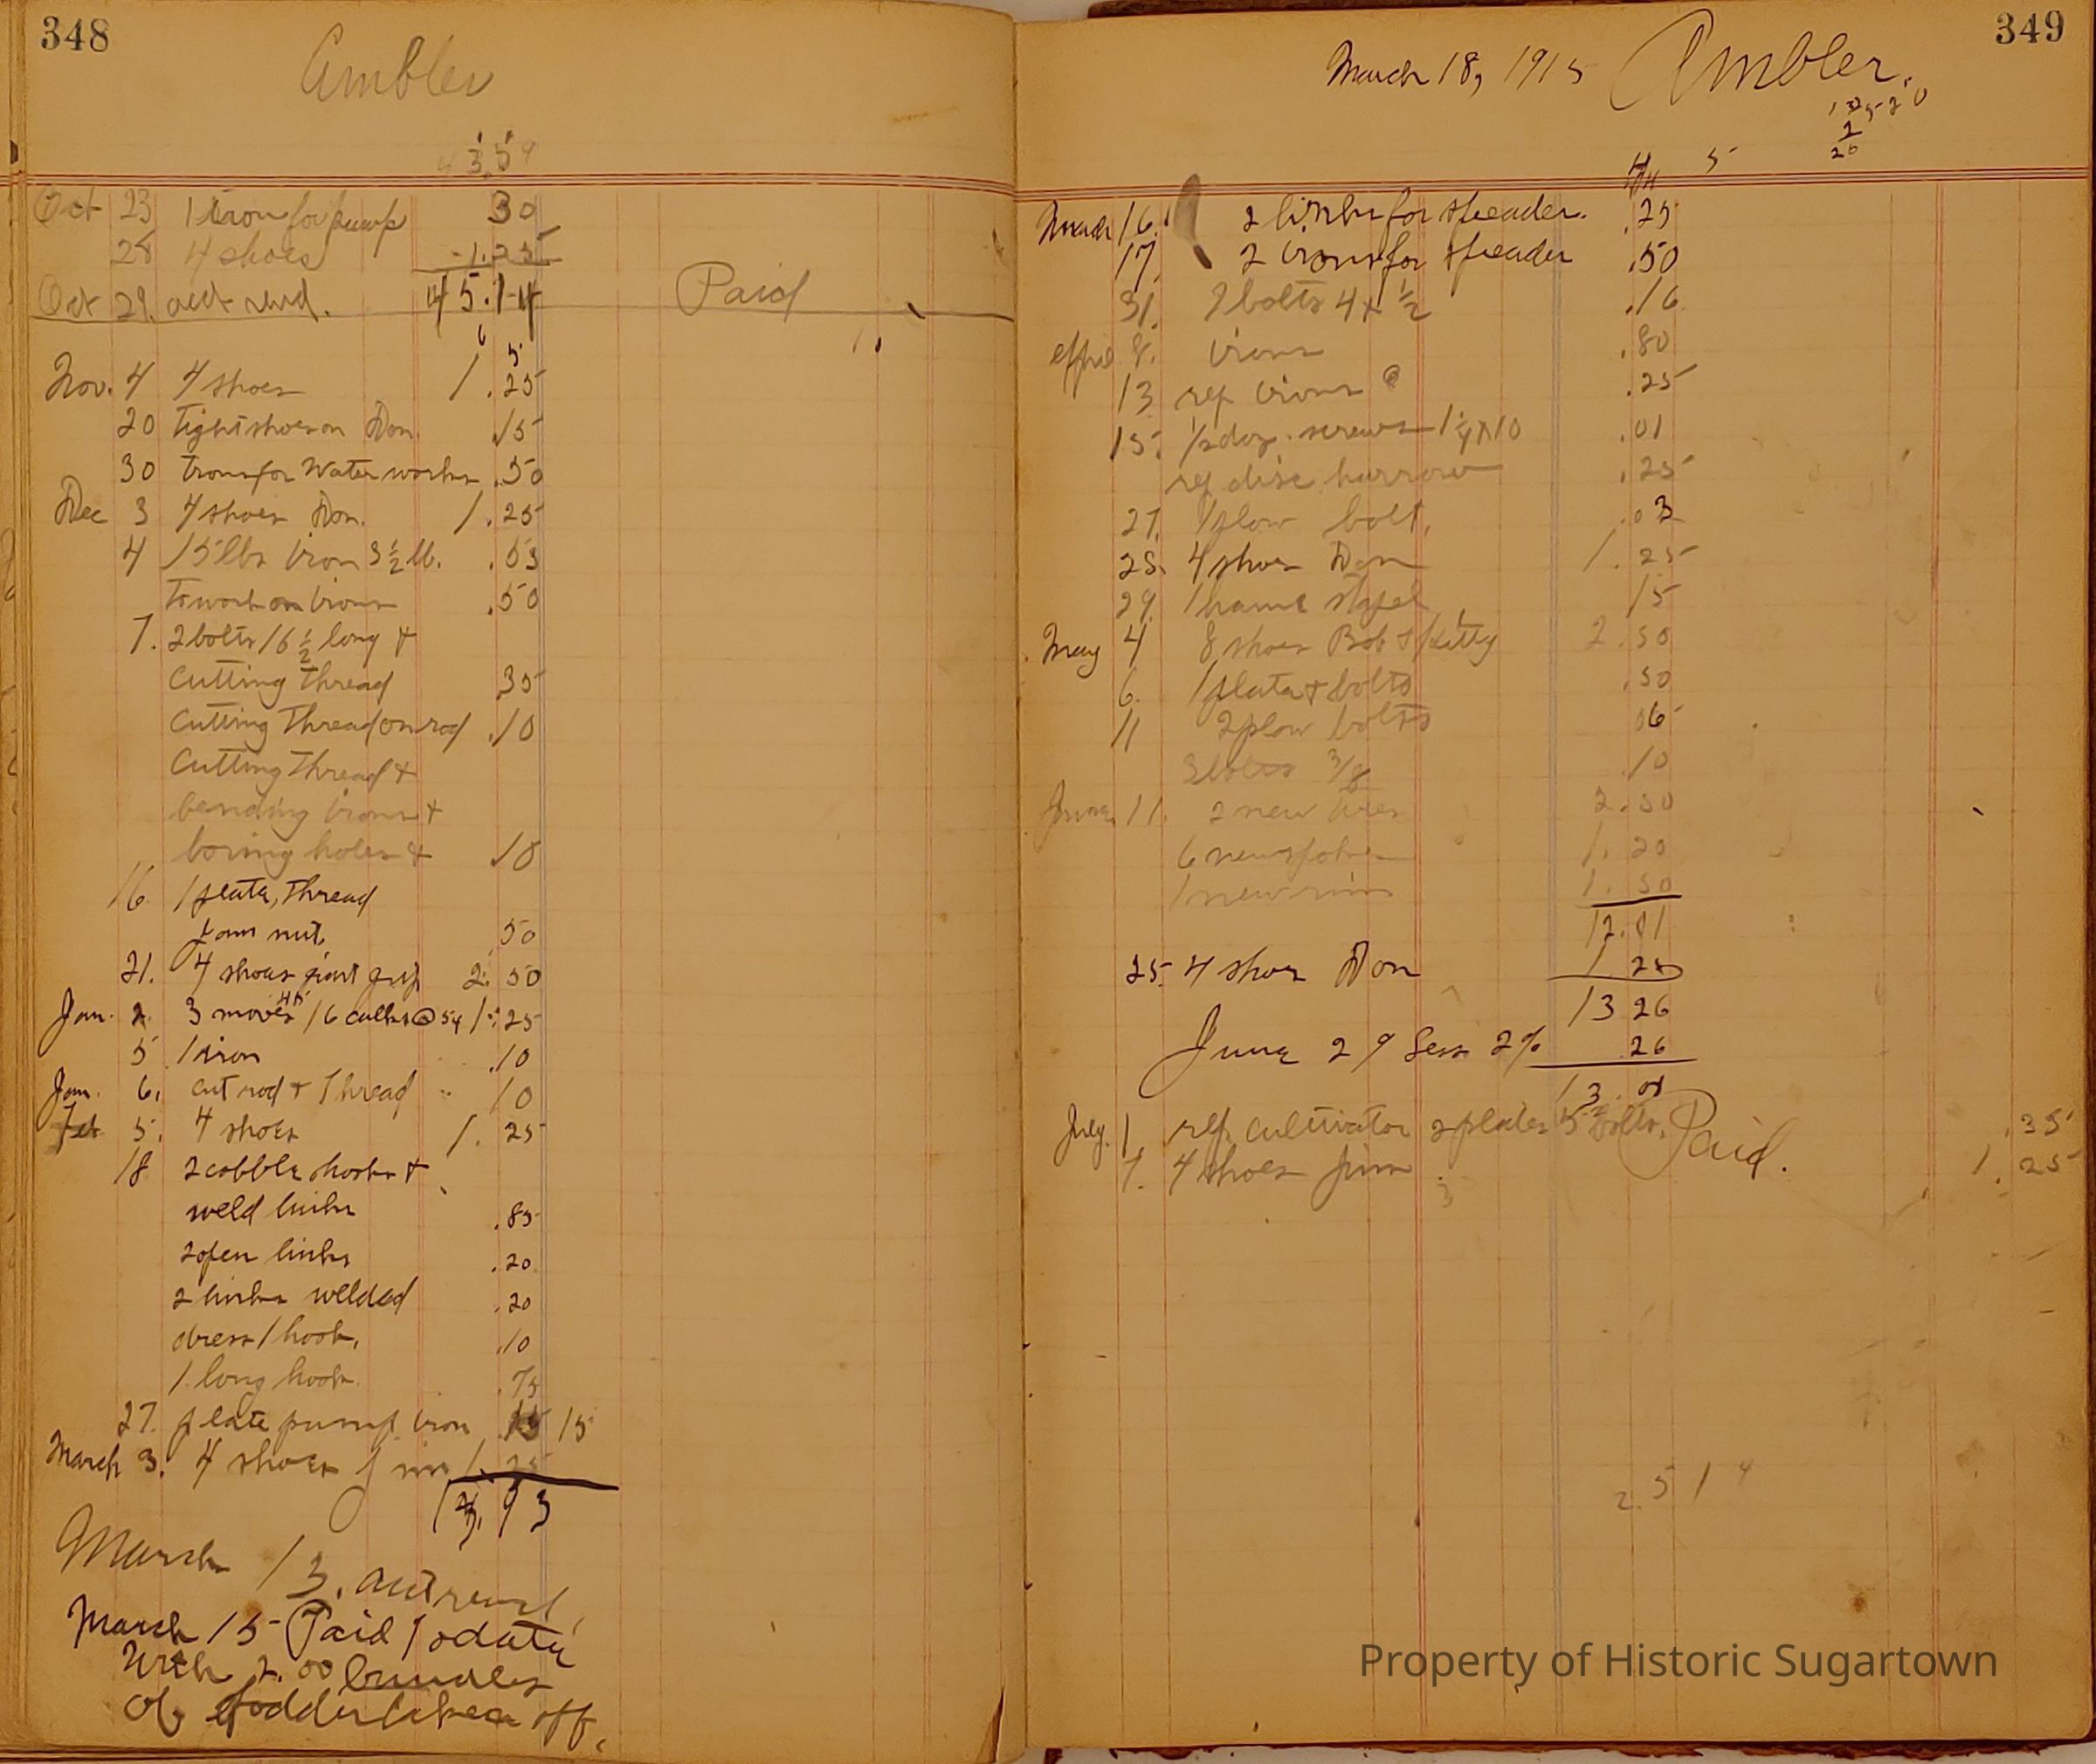 348
Ambler
4 3.54
Oct 23 1 iron for pump 30
28 4 shoes 1.25
Oct 29. acct rend. 45.14 Paid
Nov. 4 4 shoes 1.25
20 tight shoes on Don. .15
30 Irons for Water works .50
Dec 3 4 shoes Don. 1.25
4 15 lbs iron 3 1/2 lb. .53
To work on irons .50
7. 2 bolts 16 1/2 long +
Cutting thread 35
Cutting Thread on rod .10
Cutting Thread +
bending irons +
boring holes + .10
16. 1 plate, thread
nut, 50
21. 4 shoes giant grip 2.50
Jan. 2. 3 moves 16 caulks @ 5¢ 1.25
5 1 iron .10
Jan. 6. cut rod + Thread 10
Feb 5. 4 shoes 1.25
18 2 cobble hooks +
weld links .85
2 open links .20
2 links welded .20
dress 1 hook. .10
1 long hook. .75
27. plate pump iron 15
March 3. 4 shoes Jim 1.25
13.93
March 13. act rend.
March 15 Paid to date
With 2.00 bundles
of fodder taken off.
349
March 18, 1915 Ambler.
5
2
26
March 16. 2 links for spreader. .25
17. 2 irons for spreader .50
31. 2 bolts 4 x 1/2 .16
April 8. irons .80
13 rep irons .25
15. 1/2 doz. screws 1 1/4 x 10 .01
rep disc harrow .25
27. 1 plow bolt, .03
28. 4 shoes Don 1.25
29. 1 hame stapel 15
May 4 8 shoes Bob + Kitty 2.50
6. 1 plate + bolts .50
11 2 plow bolts 06
3 bolts 3/8 .10
June 11. 2 new tires 2.50
6 new spokes 1.20
1 new rim 1.50
12.01
25. 4 shoes Don 1.25
13 26
June 29 Less 2% .26
13.00
July 1. rep. cultivator 2 plates 5 bolts. Paid. .35
7. 4 shoes Jim 1.25
2.514
Property of Historic Sugartown